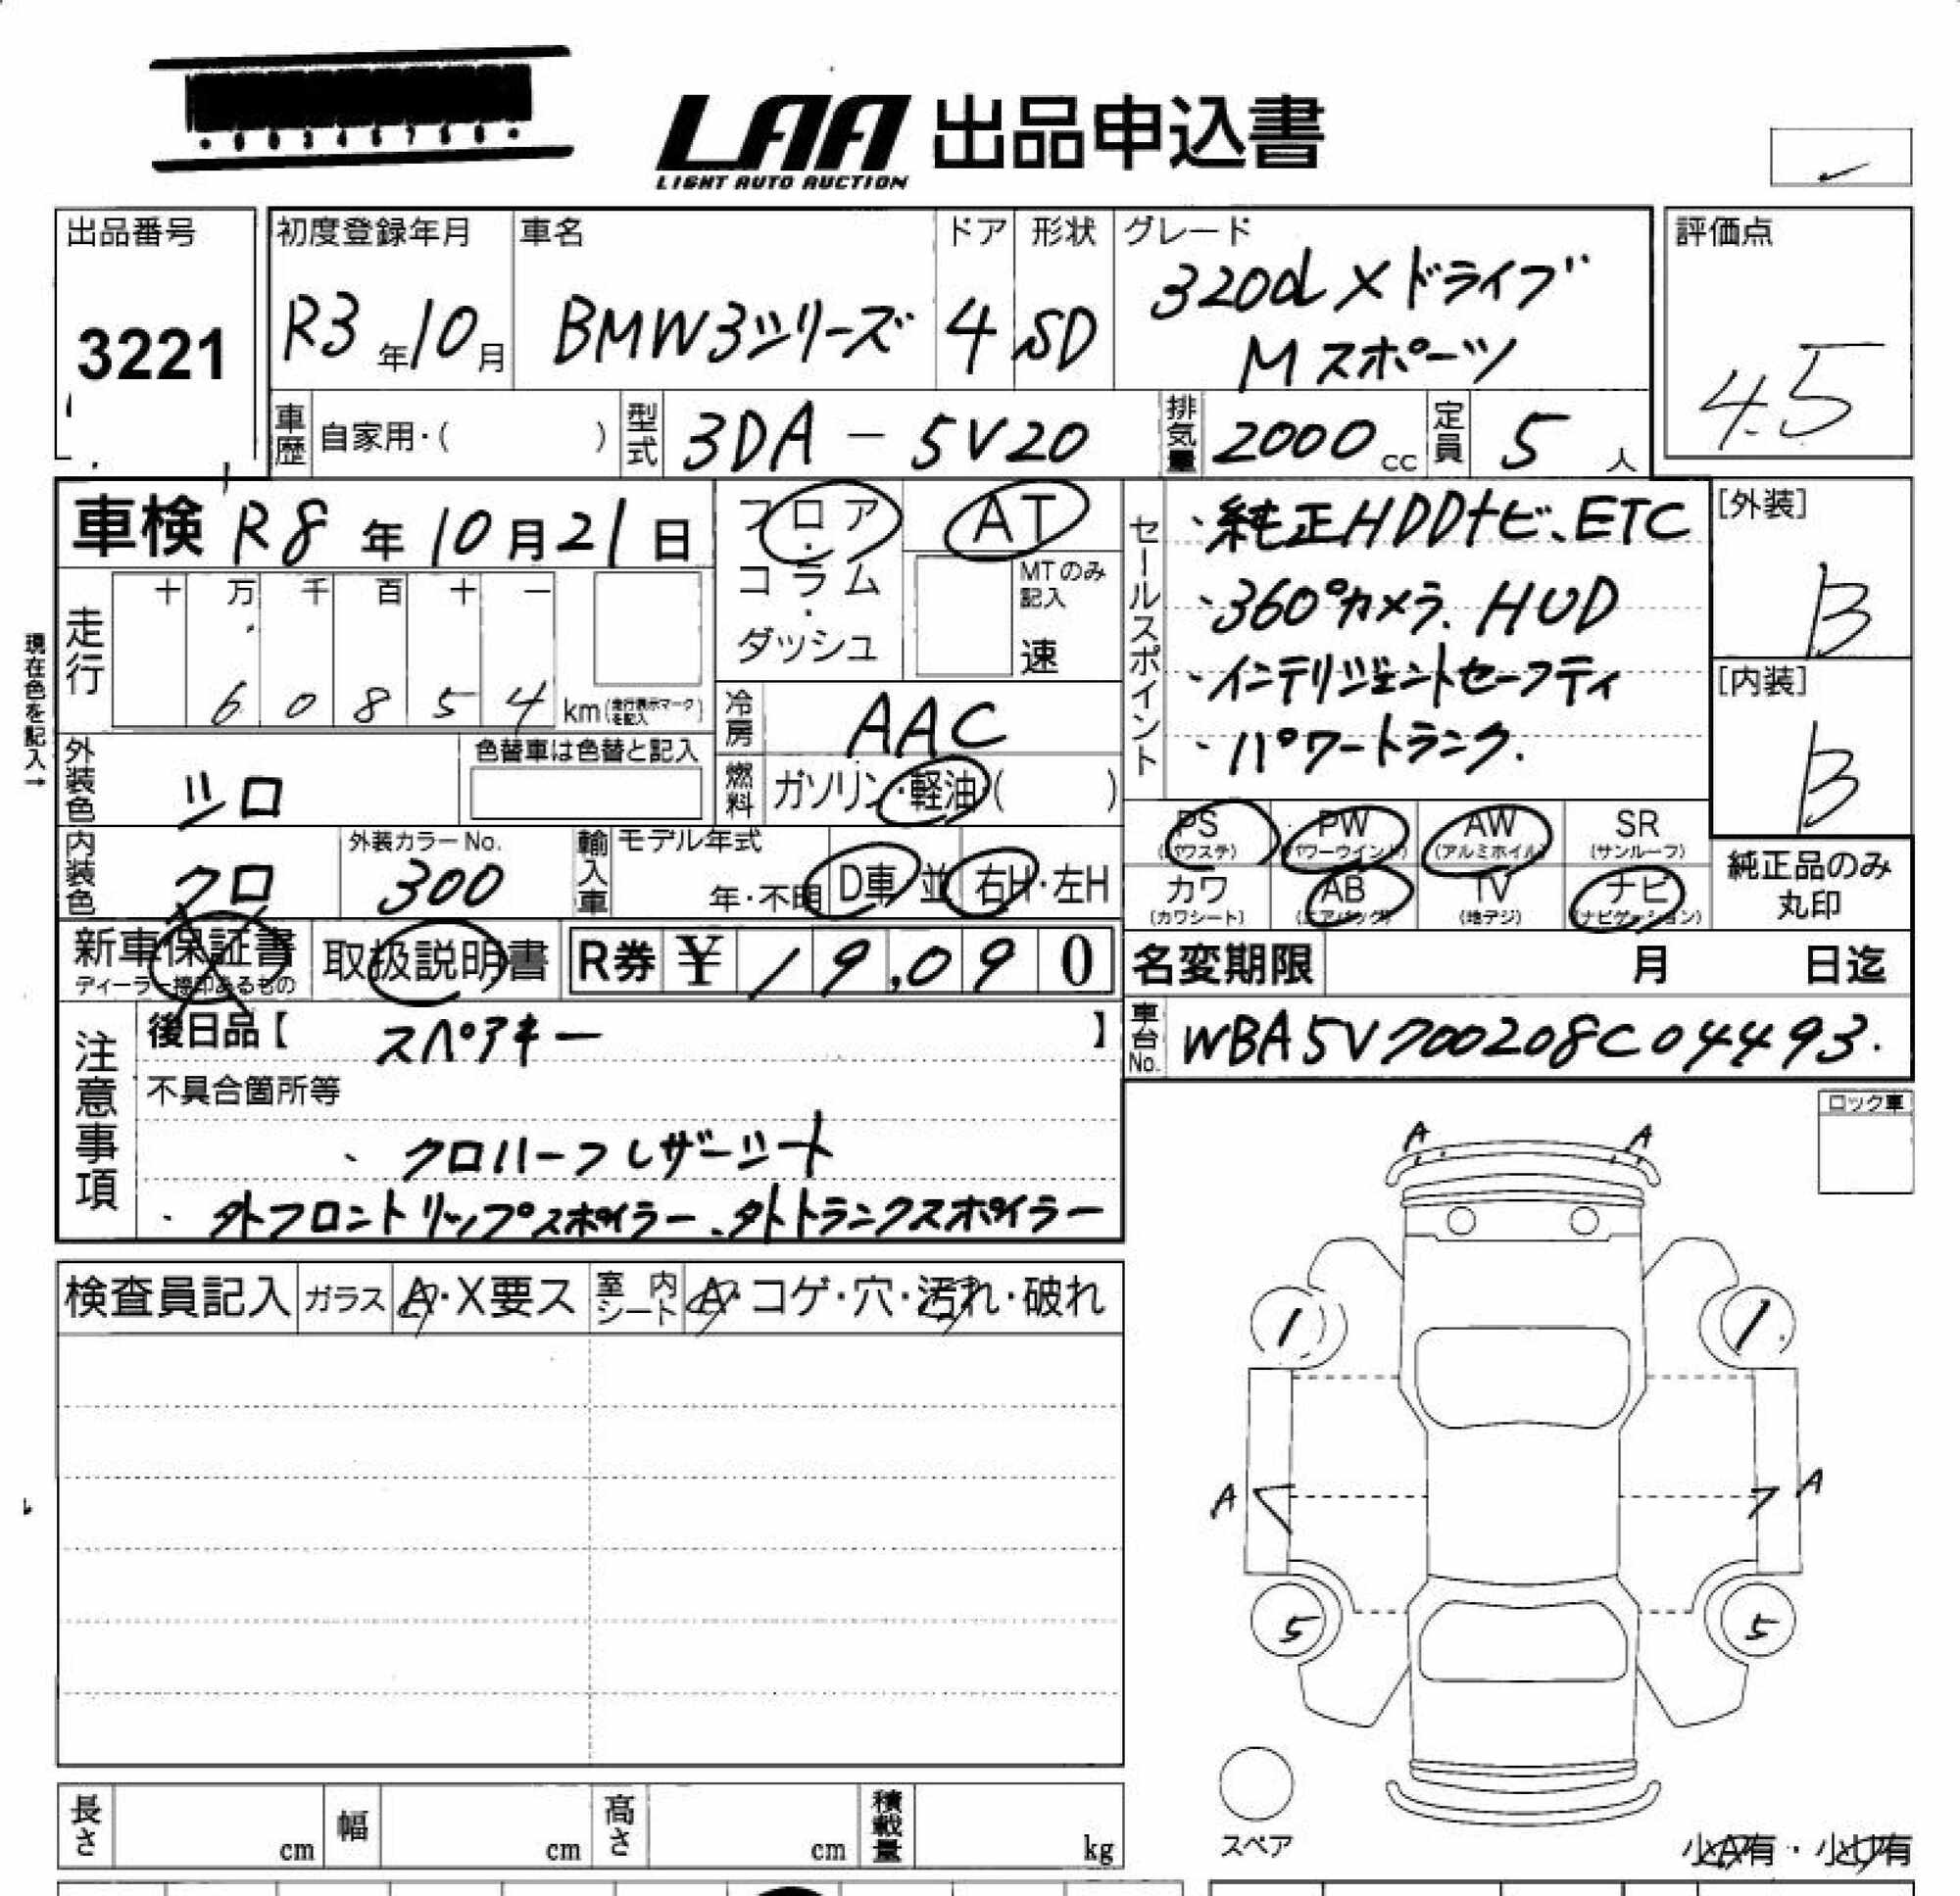 LAA 出品申込書
LIGHT AUTO AUCTION
出品番号
3221
初度登録年月
R3年10月
車名
BMW3シリーズ
ドア
4
形状
SD
グレード
320d Xドライブ
Mスポーツ
評価点
4.5
車歴 自家用・( )
型式 3DA-5V20
排気量 2000cc
定員 5人
車検 R8年10月21日
フロア・コラム・ダッシュ
AT
MTのみ記入
速
セールスポイント
・純正HDDナビ、ETC
・360°カメラ、HUD
・インテリジェントセーフティ
・パワートランク.
[外装]
B
[内装]
B
現在色を記入→
走行
十 万 千 百 十 一
6 0 8 5 4 km(走行表示マークを記入)
冷房 AAC
燃料 ガソリン・軽油( )
外装色 シロ
色替車は色替と記入
内装色 クロ
外装カラーNo.
300
輸入車 モデル年式
年・不明 D車 並 右H・左H
PS
(パワステ)
PW
(パワーウインド)
AW
(アルミホイル)
SR
(サンルーフ)
カワ
(カワシート)
AB
(エアバック)
TV
(地デジ)
ナビ
(ナビゲーション)
純正品のみ
丸印
新車保証書
ディーラー捺印あるもの
取扱説明書
R券 ¥ 19,090
名変期限 月 日迄
車台No. WBA5V700208C04493.
注意事項
後日品【 スペアキー 】
不具合箇所等
、クロハーフレザーシート
・外フロントリップスポイラー、外トランクスポイラー
ロック車
検査員記入 ガラス A・X要ス 室内シート A・コゲ・穴・汚れ・破れ
A A
1 1
A A
5 5
スペア
小A有・小U有
長さ cm 幅 cm 高さ cm 積載量 kg